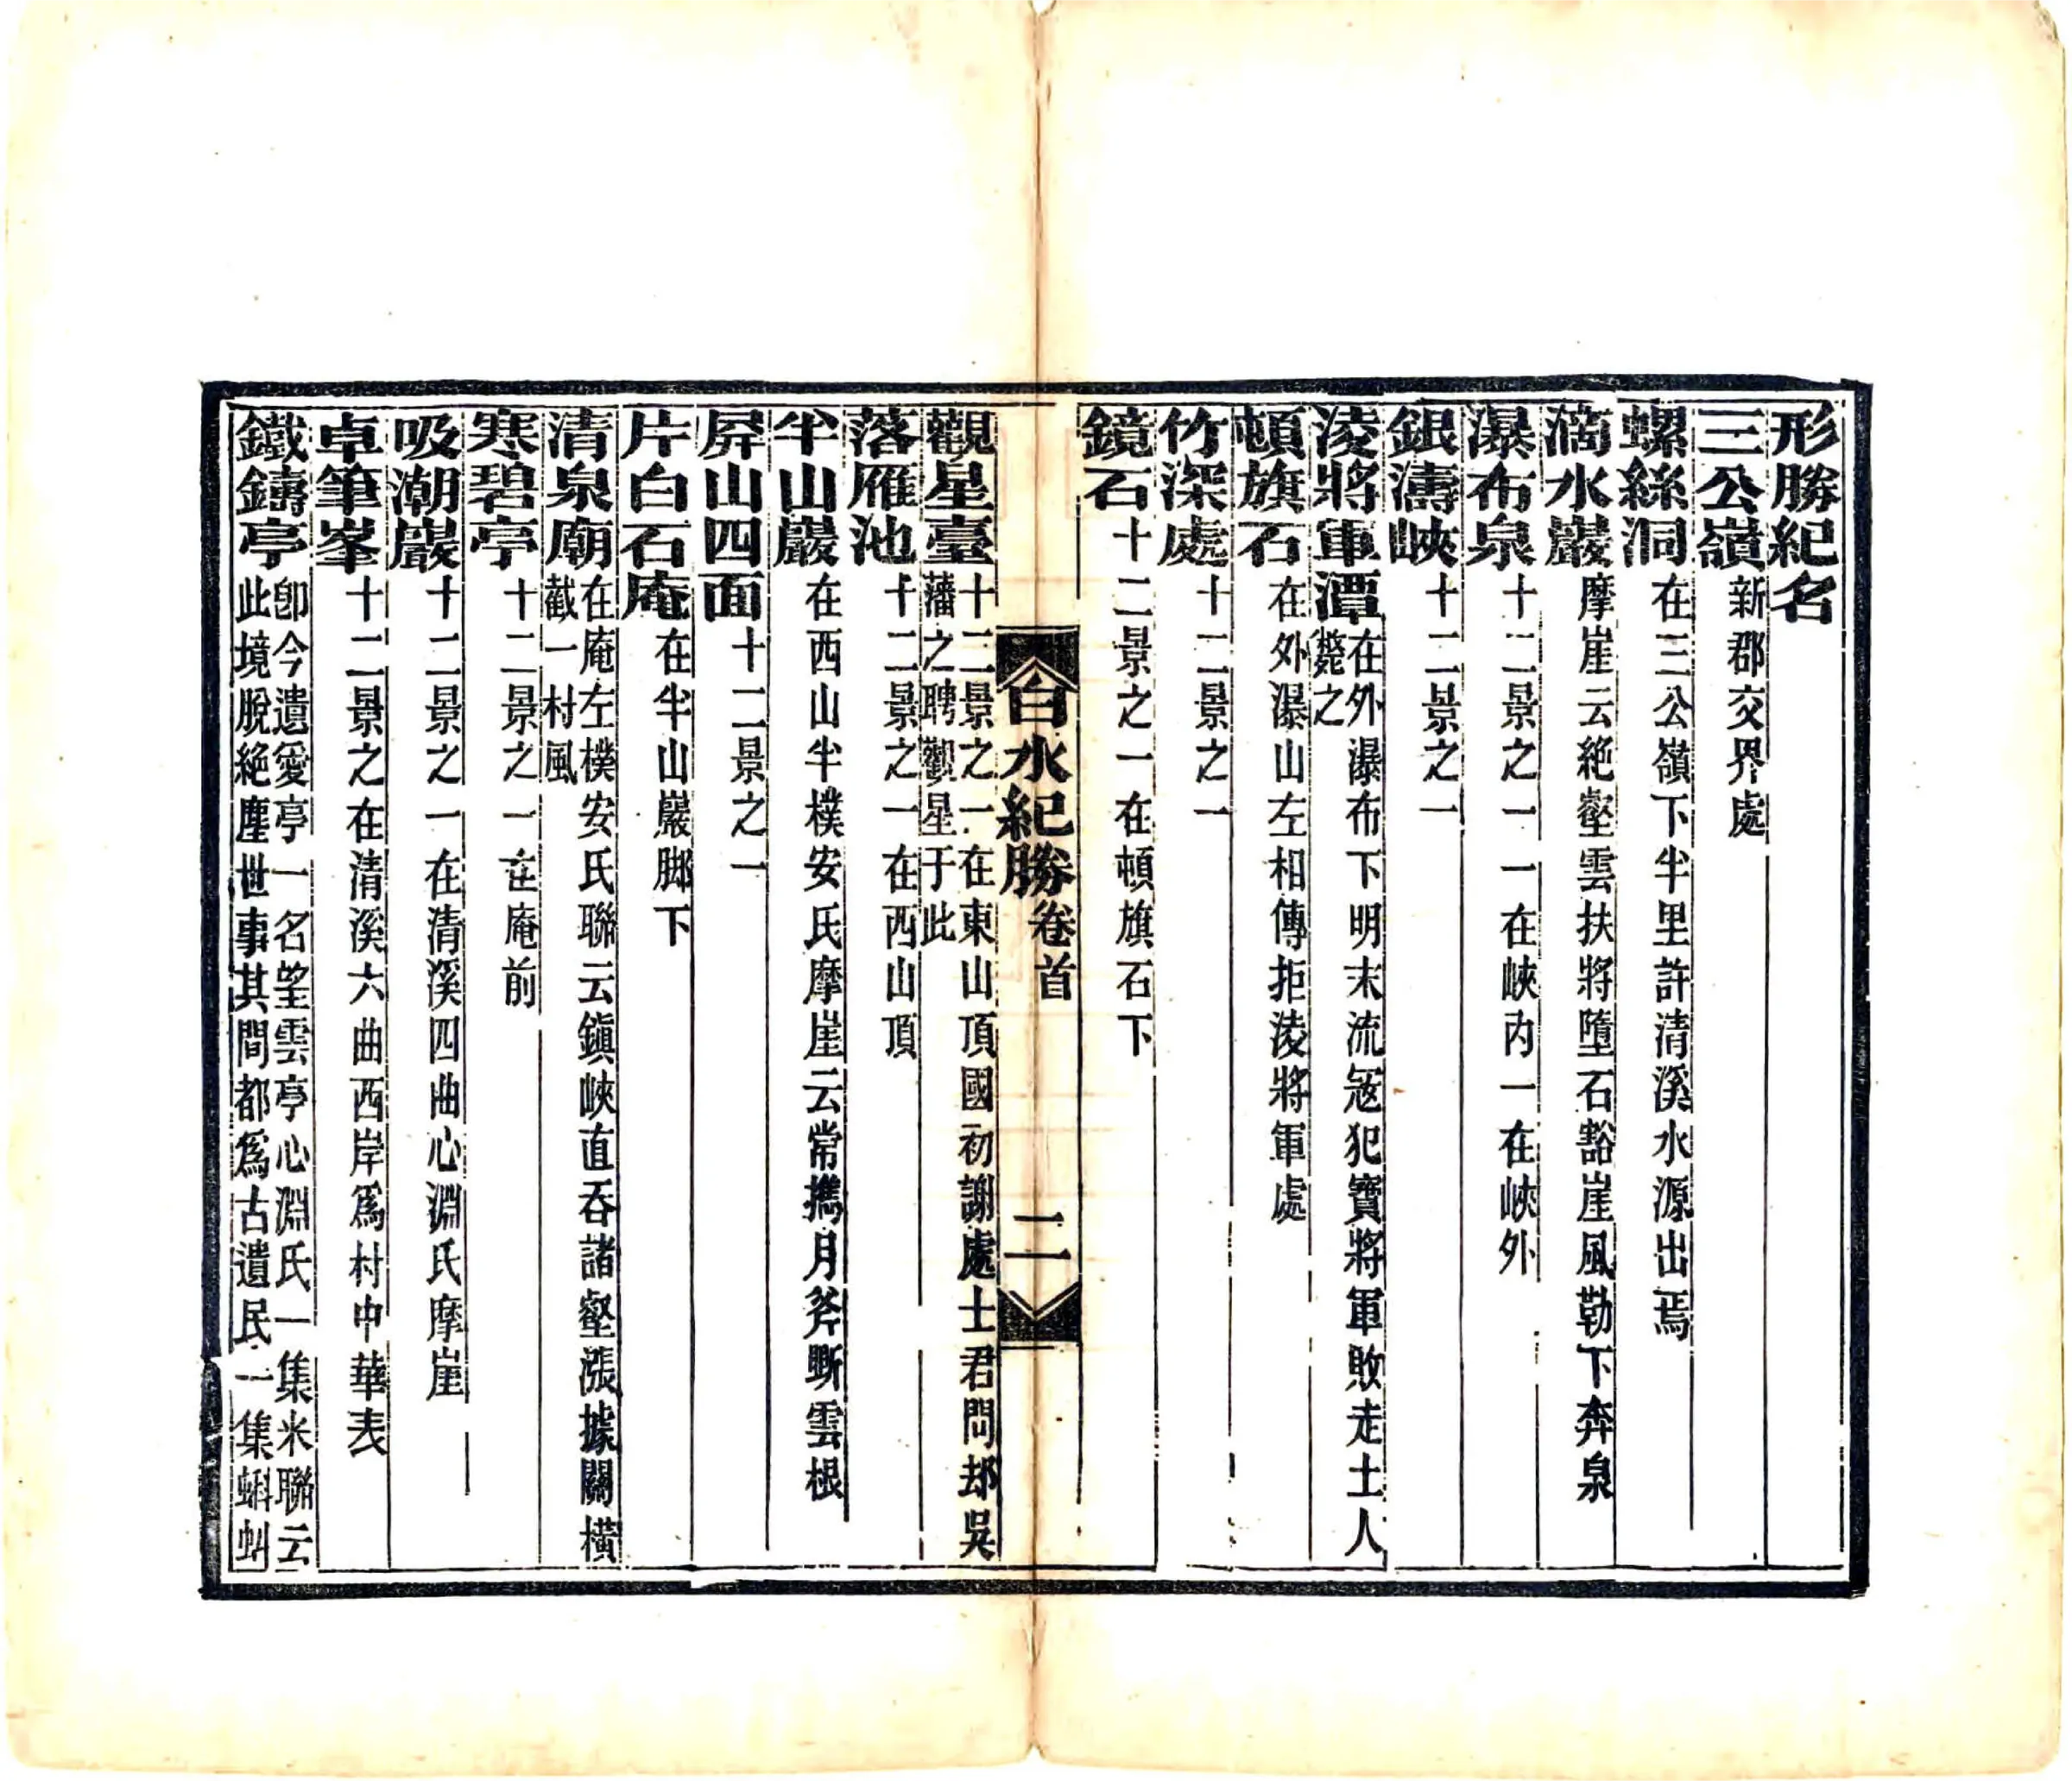 形勝紀名
三公嶺新郡交界處
螺絲洞在三公嶺下半里許清溪水源出焉
滴水巖摩崖云絕壑雲扶將墮石豁崖風勒下奔泉
瀑布泉十二景之一一在峽内一在峽外
銀濤峽十二景之一
淩將軍潭在外瀑布下明末流寇犯寶將軍敗走土人
斃之
頓旗石在外瀑山左相傳拒淩將軍處
竹深處十二景之一
鏡石十二景之一在頓旗石下
白水紀勝卷首 二
觀星臺十二景之一在東山頂國初謝處士君問却吳
藩之聘觀星于此
落雁池十二景之一在西山頂
半山巖在西山半樸安氏摩崖云常攜月斧斲雲根
屛山四面十二景之一
片白石庵在半山巖脚下
清泉廟在庵左樸安氏聯云鎮峽直吞諸壑漲據關橫
截一村風
寒碧亭十二景之一在庵前
吸潮巖十二景之一在清溪四曲心淵氏摩崖
卓筆峯十二景之在清溪六曲西岸爲村中華表
鐵鑄亭卽今遺愛亭一名望雲亭心淵氏一集米聯云
此境脫絕塵世事其間都爲古遺民一集蝌蚪